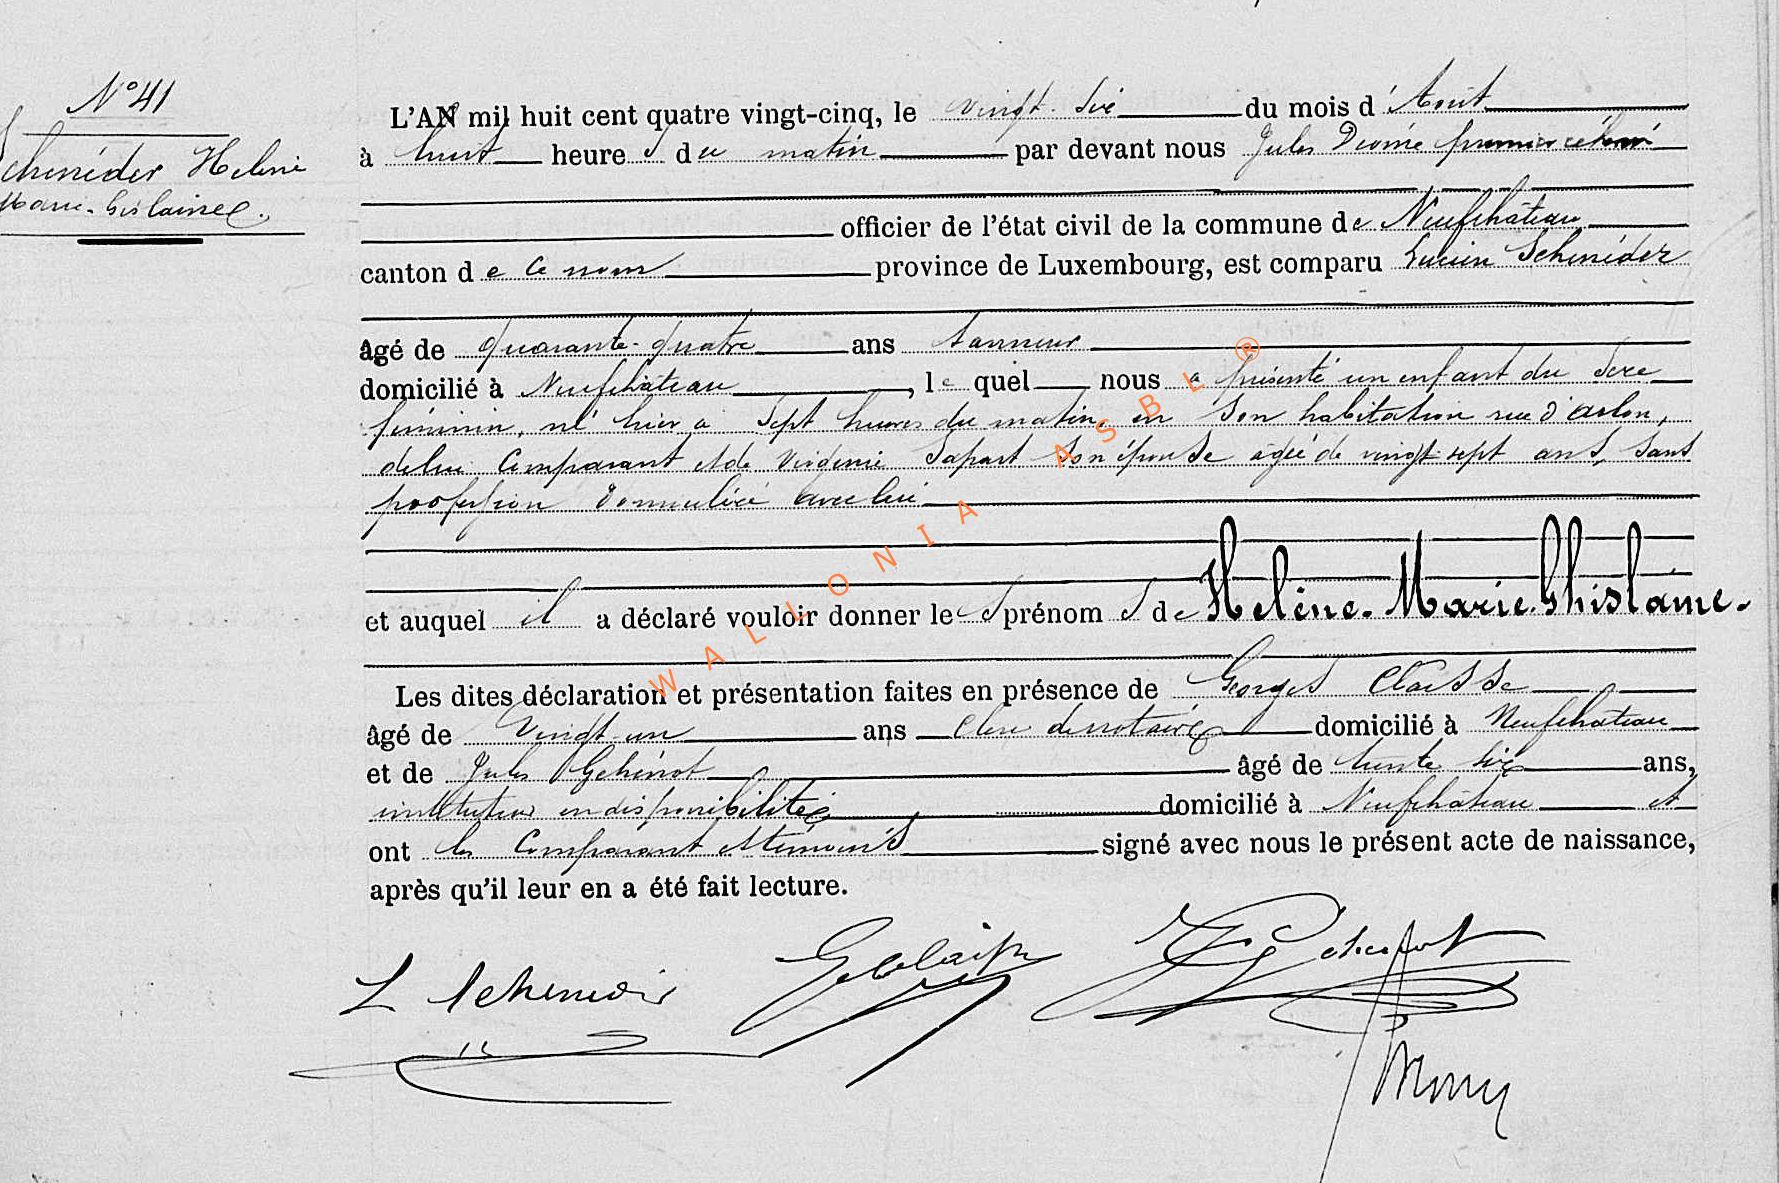 N° 41
Scheneider Helene
Marie-Gislaine.
L'AN mil huit cent quatre vingt-cinq, le vingt-six du mois d'Août
à huit heures du matin par devant nous Jules premier échevin
officier de l'état civil de la commune de Neufchâteau
canton de ce nom province de Luxembourg, est comparu Lucien Schenéder
âgé de quarante-quatre ans tanneur
domicilié à Neufchâteau, lequel nous a présenté un enfant du sexe
féminin, né hier à sept heures du matin, en son habitation rue d'arlon,
de lui comparant et de Virginie Sapart son épouse agée de vingt sept ans, sans
profession domiciliée avec lui
et auquel il a déclaré vouloir donner les prénoms de Helène-Marie-Ghislaine-
Les dites déclaration et présentation faites en présence de Georges Claisse
âgé de Vingt-un ans clerc de notaire domicilié à Neufchâteau
et de Jules Gehénot âgé de trente six ans,
instituteur en disponibilité domicilié à Neufchâteau et
ont les comparant et témoins signé avec nous le présent acte de naissance,
après qu'il leur en a été fait lecture.
WALLONIA ASBL ®
L